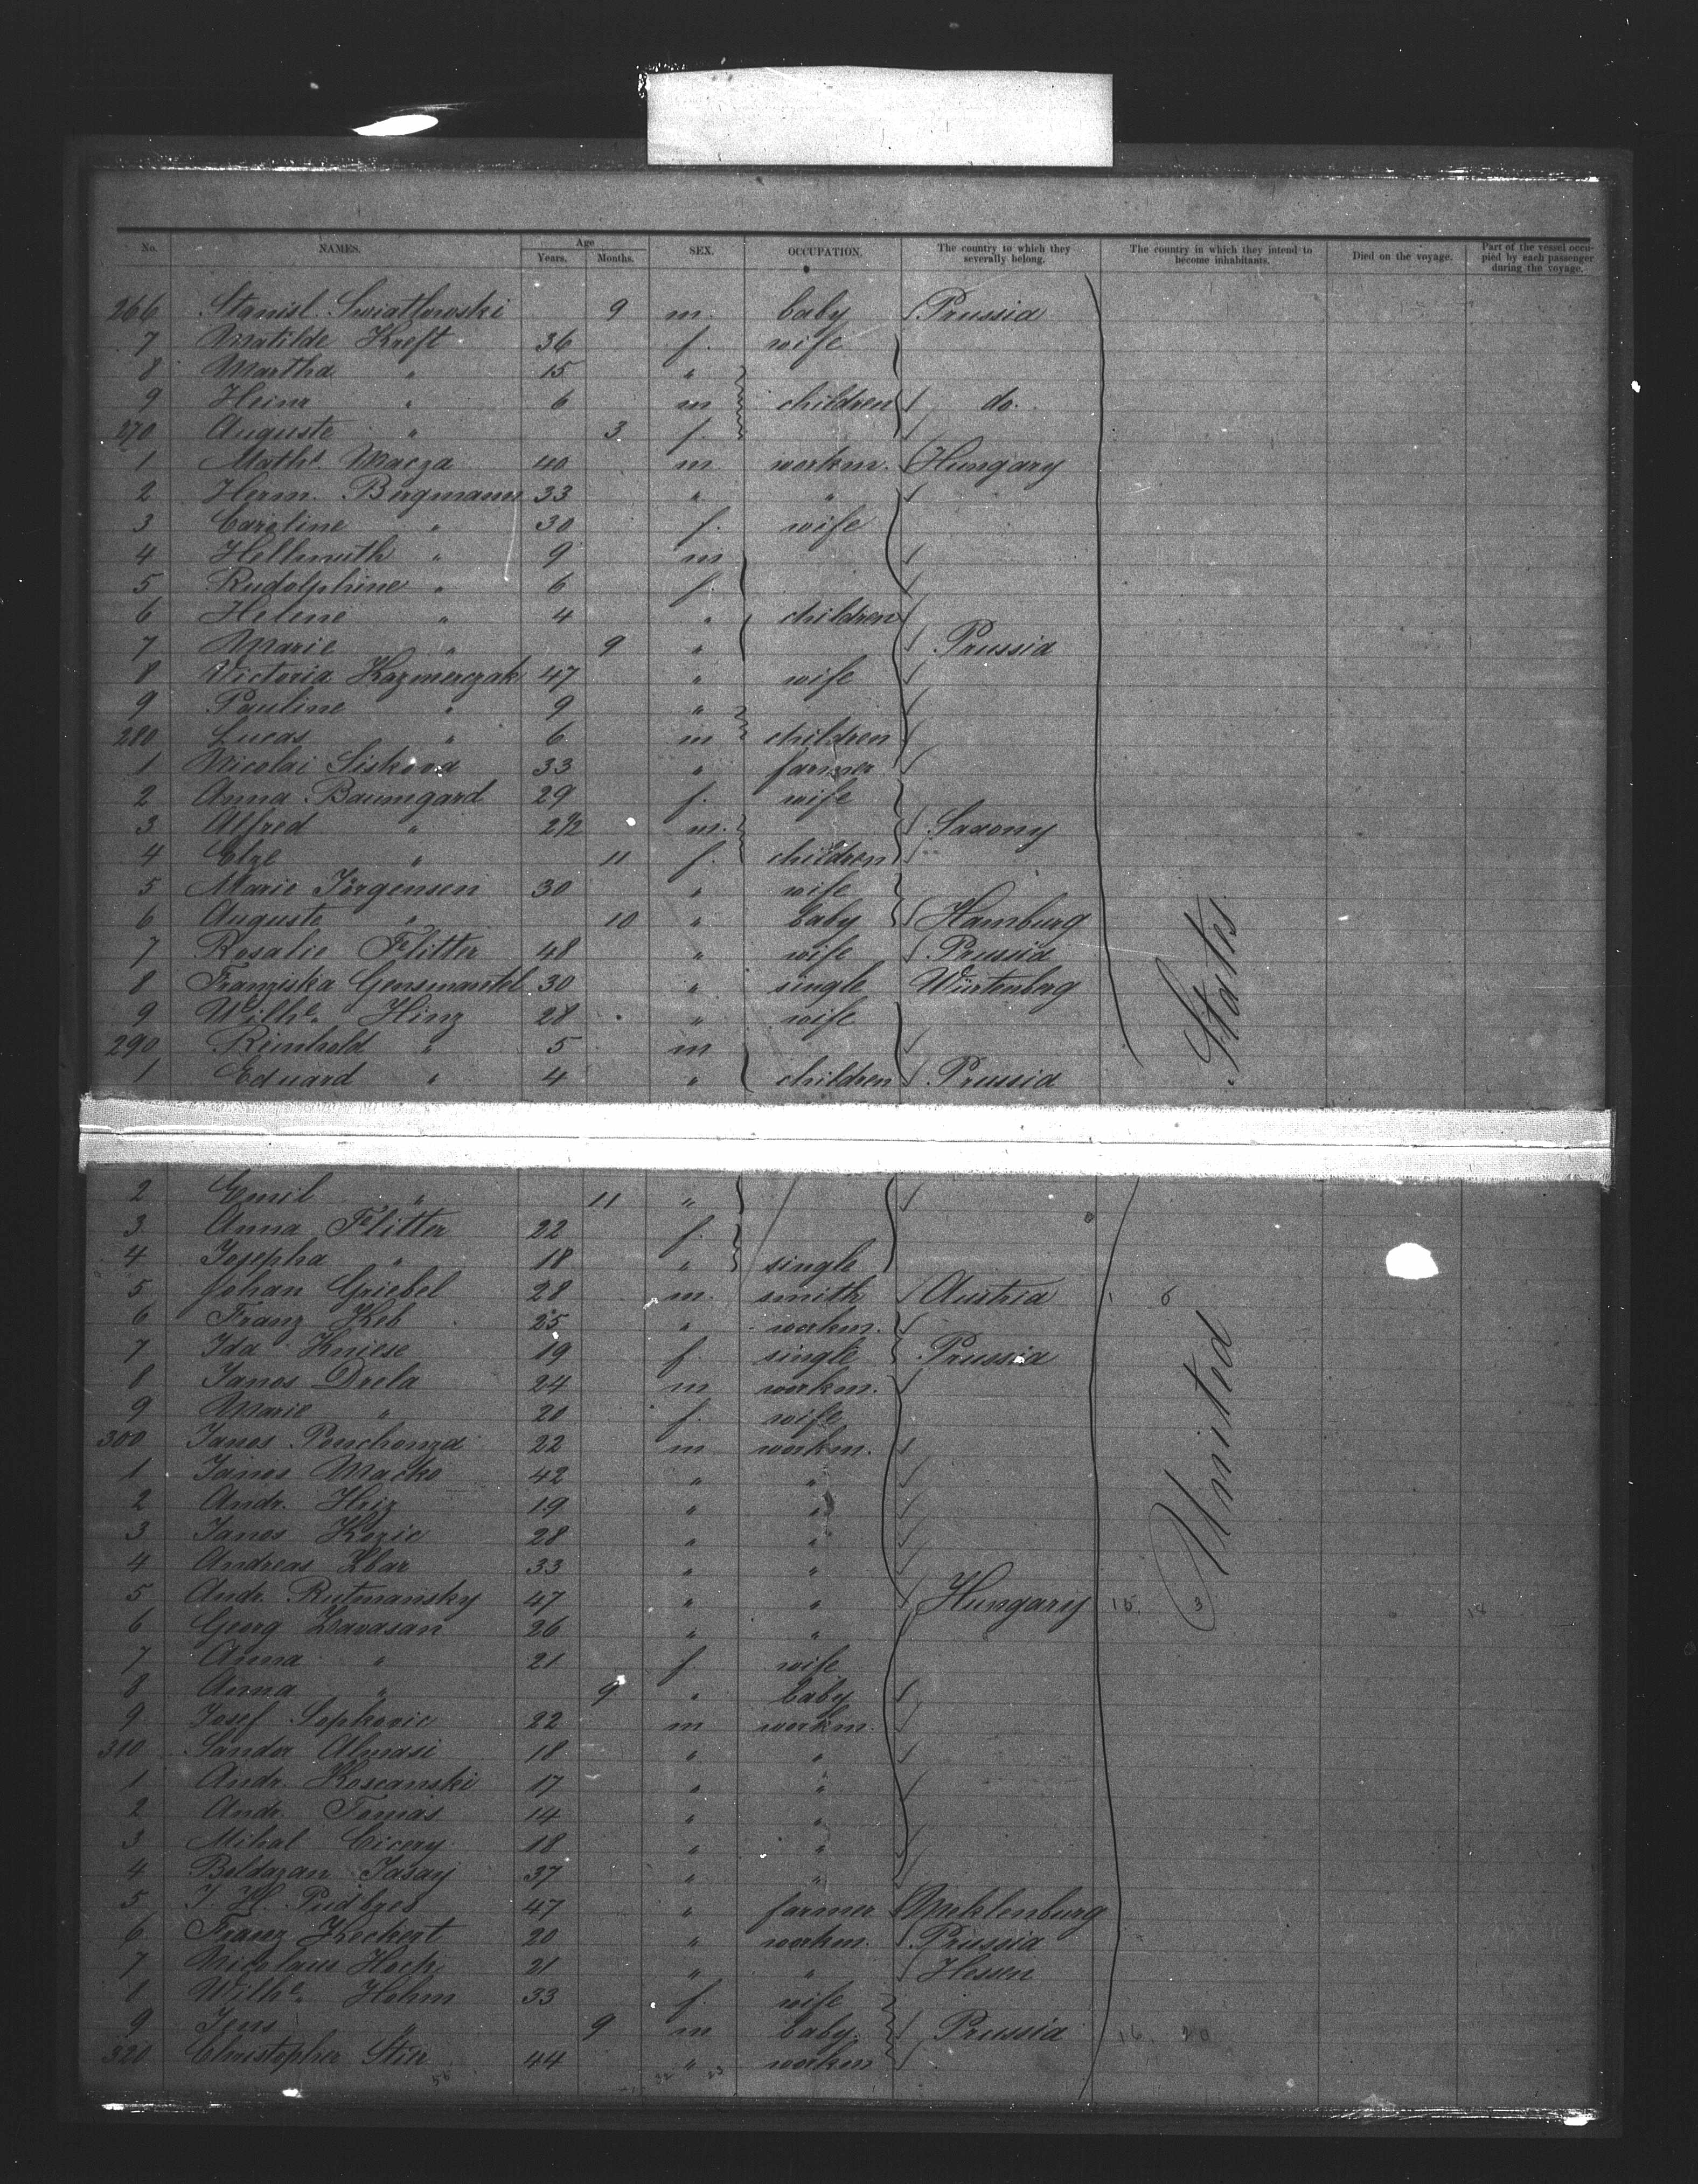 No. NAMES. Age Years. Months. SEX. OCCUPATION. The country to which they severally belong. The country in which they intend to become inhabitants. Died on the voyage. Part of the vessel occupied by each passenger during the voyage.
266 Stanisl. Swiatlowski 9 m. baby Prussia
7 Matilde Kreft 36 f. wife
8 Martha " 15 "
9 Heinr " 6 m children do.
270 Auguste " 3 f.
1 Maths Macza 40 m workm. Hungary
2 Herm. Bergmann 33 " "
3 Caroline " 30 f. wife
4 Hellmuth " 9 m
5 Rudolphine " 6 f.
6 Helene " 4 " children
7 Marie " 9 " Prussia
8 Victoria Kazmerczak 47 " wife
9 Pauline " 9 "
280 Lucas " 6 m children
1 Nicolai Siskova 33 " farmer
2 Anna Baumgard 29 f. wife
3 Alfred " 2 1/2 m. Saxony
4 Elze " 11 f. children
5 Marie Jörgensen 30 " wife
6 Auguste " 10 " baby Hamburg
7 Rosalie Flitter 48 " wife Prussia
8 Franziska Gensmantel 30 " single Würtenberg
9 Wilhe. Hinz 28 " wife
290 Reinhold " 5 m
1 Eduard " 4 " children Prussia
2 Emil " 11 "
3 Anna Flitter 22 f.
4 Josepha " 18 " single
5 Johan Griebel 28 m. smith Austria 1 6
6 Franz Keb 25 " workm.
7 Ida Kniese 19 f. single Prussia
8 Janos Drela 24 m workm.
9 Marie " 20 f. wife
300 Janos Penchonza 22 m workm.
1 Janos Macko 42 " "
2 Andr. Hriz 19 " "
3 Janos Kozic 28 " "
4 Andreas Zbar 33 " "
5 Andr. Rutmansky 47 " " Hungary 15. 3 18
6 Georg Zavasan 26 " "
7 Anna " 21 f. wife
8 Anna " 9 " baby
9 Josef Sopkovic 22 m workm.
310 Sandor Almasi 18 " "
1 Andr. Koscanski 17 " "
2 Andr. Tomas 14 " "
3 Mihal Cicery 18 " "
4 Beldazan Jasay 37 " "
5 J. H. 47 " farmer Meklenburg
6 Franz Heckert 20 " workm. Prussia
7 Nicolaus Hoch 21 " " Hessen
8 Wilhe. Hohm 33 f. wife
9 Jens " 9 m baby. Prussia 16. 20
320 Christopher Stier 44 " workm
United States.